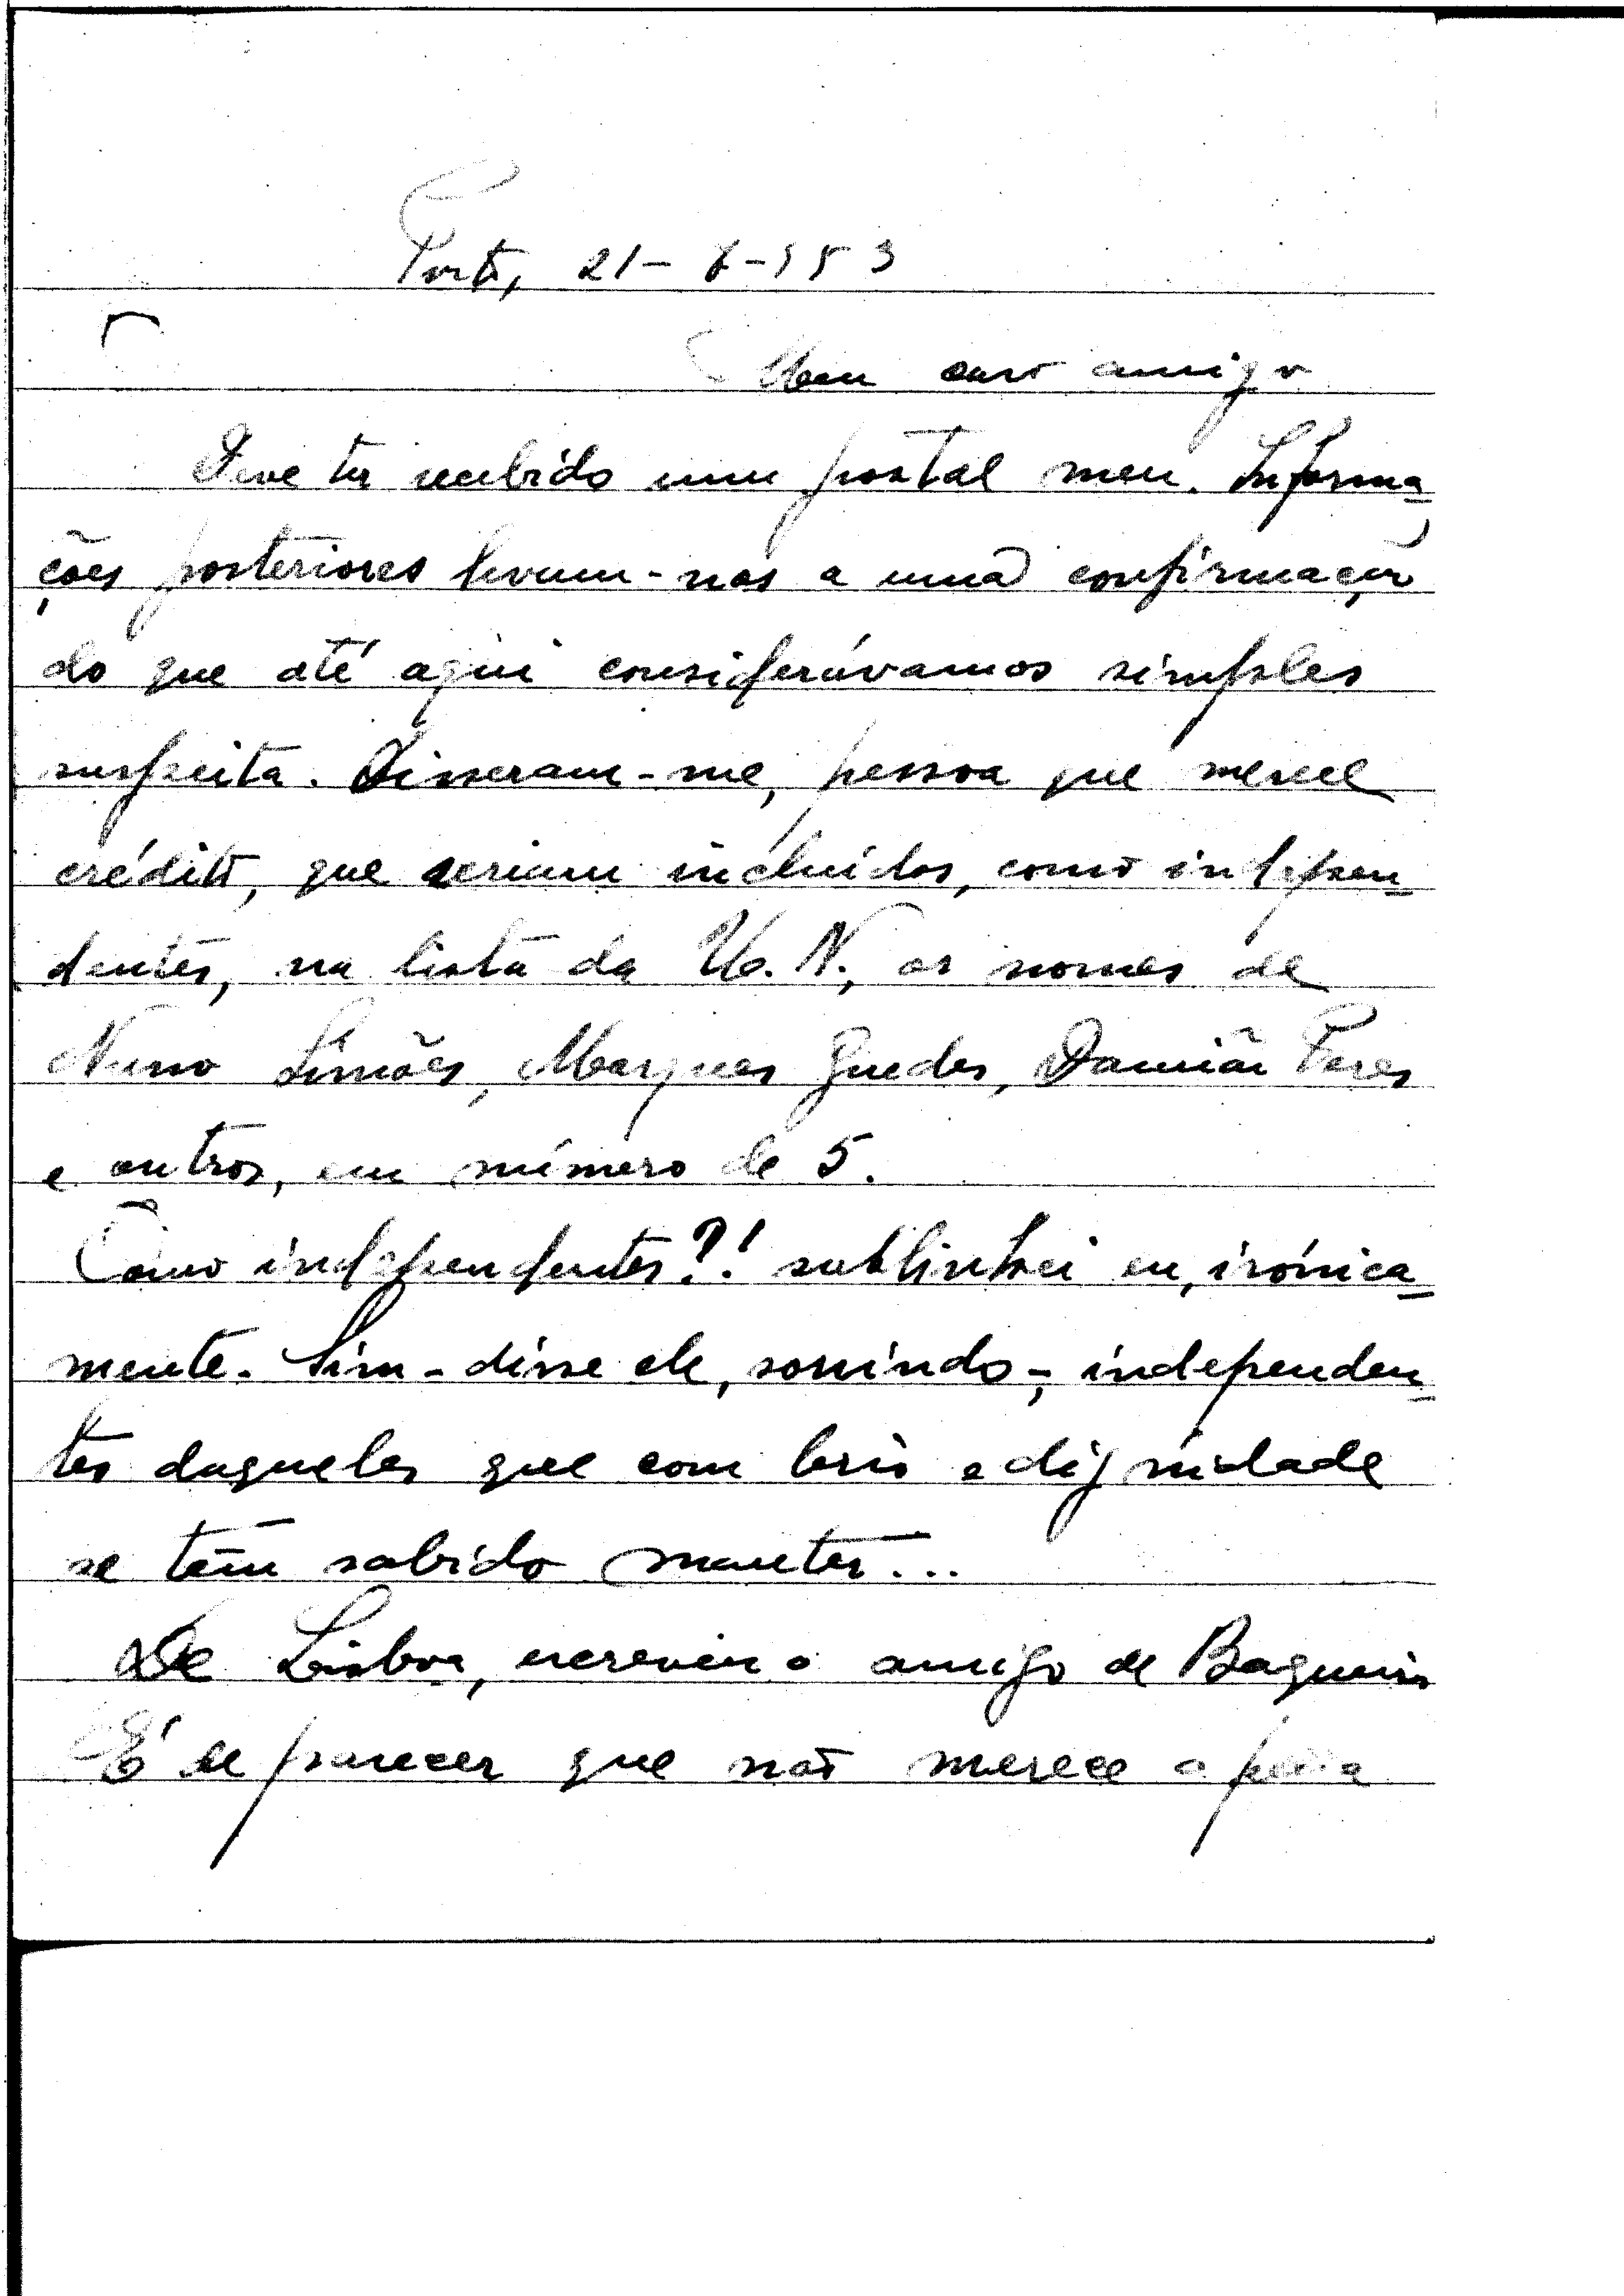 Porto, 21-8-953
Meu caro amigo
Deve ter recebido um postal meu. Informa-
ções posteriores levam-nos a uma confirmação
do que até aqui considerávamos simples
suspeita. Disseram-me, pessoa que merece
crédito, que seriam incluídos, como indepen-
dentes, na lista da U.N., os nomes de
Nuno Simões, Marques Guedes, Damião Peres
e outros, em número de 5.
Como independentes?! sublinhei eu, irónica-
mente. Sim - disse ele, sorrindo -, independen-
tes daqueles que com brio e dignidade
se têm sabido manter...
De Lisboa, escreveu o amigo de
É de parecer que não merece a pena